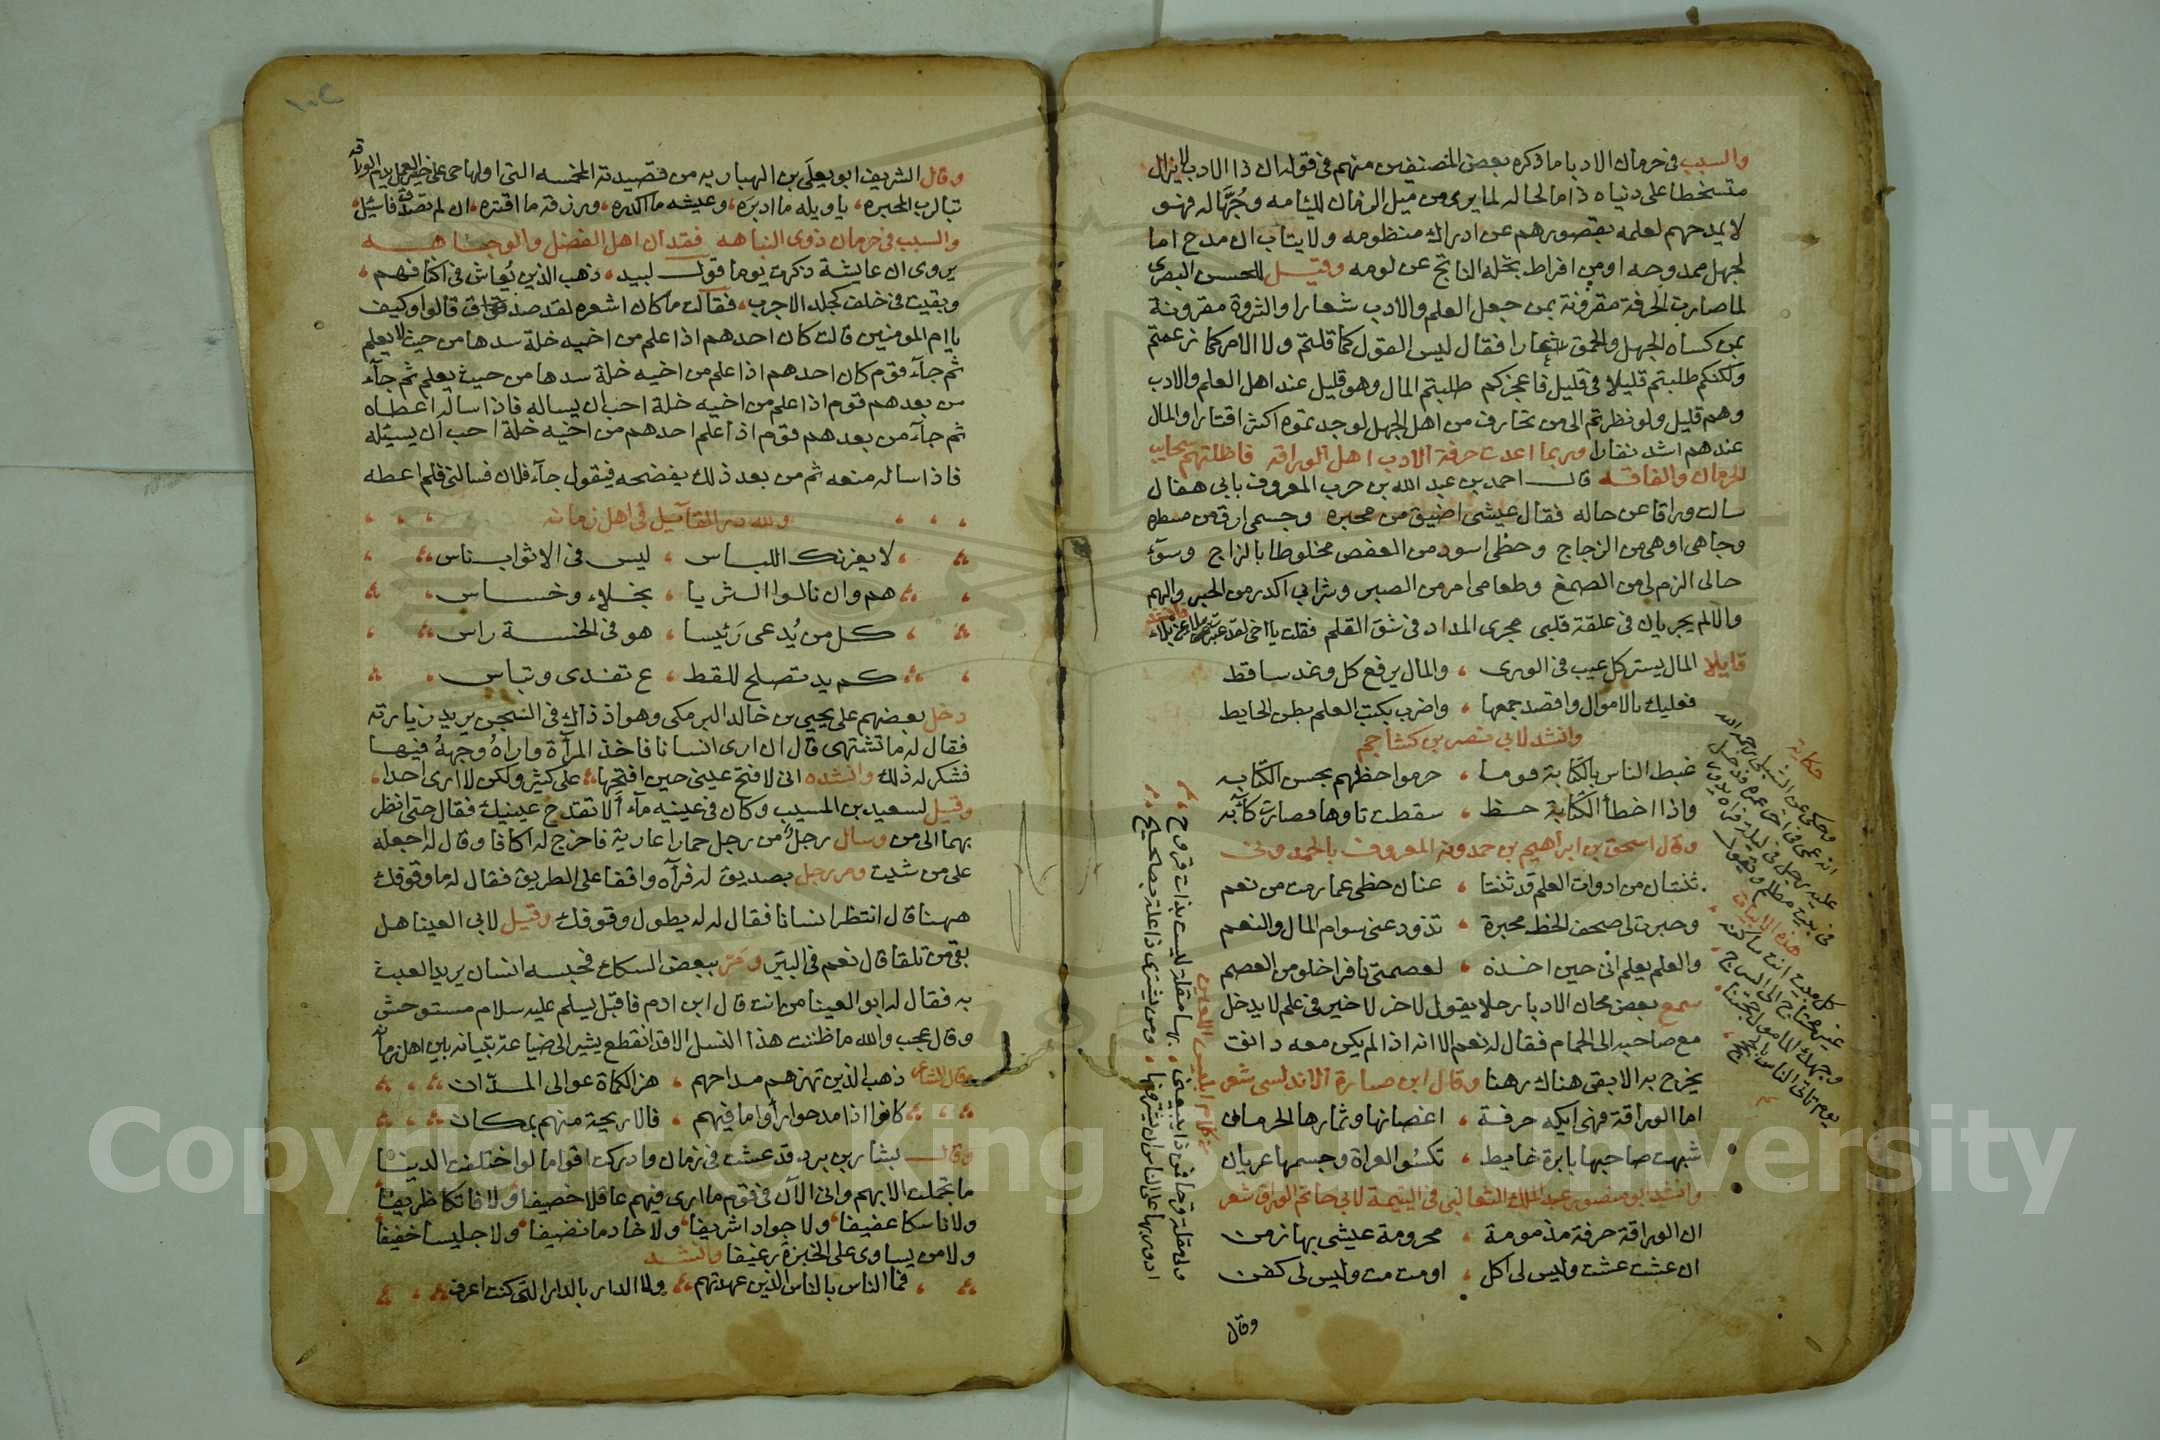 والسبب في حرمان الادبا ما ذكره بعض المصنفين منهم في قوله ان ذا الادب لا يزال
متسخطا على دنياه ذاما لحاله لما يرى من ميل الزمان للئامه وجهاله فهو
لا يمدحهم لعلمه بقصورهم عن ادراك منظومه ولا يثاب ان مدح اما
لجهل ممدوحه او من افراط بخله الناتج عن لومه وقيل للحسن البصري
لما صارت الحرفة مقرونة بمن جعل العلم والادب شعارا والثروة مقرونة
بمن كساه الجهل والحمق شعارا فقال ليس القول كما قلتم ولا الامر كما زعمتم
ولكنكم طلبتم قليلا في قليل فاعجزكم طلبتم المال وهو قليل عند اهل العلم والادب
وهم قليل ولو نظرتم الى من تحارف من اهل الجهل لوجدتموه اكثر اقتارا والمال
عندهم اشد نفارا وربما اعدت حرفة الادب اهل الوراقه فاظلتهم سحايب
الحرمان والفاقه قال احمد بن عبد الله بن حرب المعروف بابي هفان
سالت وراقا عن حاله فقال عيشي اضيق من محبره وجسمي ارق من مسطره
وجاهي اوهى من الزجاج وحظي اسود من العفص مخلوطا بالزاج وسوء
حالي الزم لي من الصمغ وطعامي امر من الصبر وشرابي اكدر من الحبر والهم
والالم يجريان في علقة قلبي مجرى المداد في شق القلم فقلت يا اخي لقد عبرت ببلاء عن بلاء وانشد
قايلا المال يستر كل عيب في الورى ، والمال يرفع كل وغد ساقط
فعليك بالاموال واقصد جمعها ، واضرب بكتب العلم بطن الحايط
وانشد لابي نصر بن كشاجم
غبط الناس بالكتابة قوما ، حرموا حظهم بحسن الكتابه
واذا اخطأ الكتابة حظ ، سقطت تاوها فصارت كآبه
وقال اسحق بن ابراهيم بن حمدويه المعروف بالحمدوني
ثنتان من ادوات العلم قد ثنتا ، عنان حظي عما رمت من نعم
وحبرت لي صحف الحظ محبرة ، تذود عني سوام المال والنعم
والعلم يعلم اني حين اخذه ، لعصمتي نافرا خلو من العصم
سمع بعض مجان الادبا رجلا يقول لاخر لا خير في علم لا يدخل
مع صاحبه الى الحمام فقال له نعم الا انه اذا لم يكن معه دانق
يخرج به الا بقي هناك رهنا وقال ابن صارة الاندلسي شعر
اما الوراقة فهي ايكه حرفة ، اغصانها وثمارها الحرمان
شبهت صاحبها بابرة خايط ، تكسو العراة وجسمها عريان
وانشد ابو منصور عبد الملك الثعالبي في اليتيمة لابي حاتم الوراق شعر
ان الوراقة حرفة مذمومة ، محرومة عيشي بها زمن
ان عشت عشت وليس لي اكل ، او مت مت وليس لي كفن
وقال
حكاية
وحكي عن الشبلي رحمه الله
هذه الابيات
كل بيت انت ساكنه
غير محتاج الى السرج
وجهك المامول حجتنا
يوم تاتي الناس بالحجج
وقال الشريف ابو يعلى بن الهباريه من قصيدته المخمسه التي اولها حي على خير العمل يذم الوراقه
تبا لرب المحبره ، يا ويله ما ادبره ، وعيشه ما اكدره ، ورزقه ما اقتره ، ان لم تصدق فاسئل ،
والسبب في حرمان ذوي النباهه فقدان اهل الفضل والوجاهه
يروى ان عايشة ذكرت يوما قول لبيد ، ذهب الذين يعاش في اكنافهم ،
وبقيت في خلف كجلد الاجرب ، فقالت ما كان اشعره لقد صدق قالوا وكيف
يا ام المومنين قالت كان احدهم اذا علم من اخيه خلة سدها من حيث لا يعلم
ثم جآء قوم كان احدهم اذا علم من اخيه خلة سدها من حيث يعلم ثم جآء
من بعدهم قوم اذا علم من اخيه خلة احب ان يساله فاذا ساله اعطاه
ثم جآء من بعدهم قوم اذا علم احدهم من اخيه خلة احب ان يسئله
فاذا ساله منعه ثم من بعد ذلك يفضحه فيقول جآء فلان فسالني فلم اعطه
ولله در القآئيل في اهل زمانه
لا يغرنك اللباس ، ليس في الاثواب ناس
هم وان نالوا الثريا ، بخلاء وخساس
كل من يدعى رئيسا ، هو في الخسة راس
كم يد تصلح للقط ، ع تفدى وتباس
دخل بعضهم على يحيى بن خالد البرمكي وهو اذ ذاك في السجن يريد زيارته
فقال له ما تشتهي قال ان ارى انسانا فاخذ المرآة واراه وجهه فيها
فشكر له ذلك وانشده اني لافتح عيني حين افتحها على كثير ولكن لا ارى احدا
وقيل لسعيد بن المسيب وكان في عينيه مآء ألا تقدح عينيك فقال حتى انظر
بهما الى من وسال رجل من رجل حمارا عارية فاخرج له اكافا وقال له اجعله
على من شيت ومر رجل بصديق له فرآه واقفا على الطريق فقال له ما وقوفك
ههنا قال انتظر انسانا فقال له له يطول وقوفك وقيل لابي العينا هل
بقي من تلقا قال نعم في البئر ومر ببعض السكك فحبسه انسان يريد العبث
به فقال له ابو العينا من انت قال ابن ادم فاقبل يسلم عليه سلام مستوحش
وقال عجب والله ما ظننت هذا النسل الا قد انقطع يشير الى ضياعته بتيانه بين اهل زمانه
وقال الشاعر ذهب الذين تهزهم مداحهم ، هز الكماة عوالي المران
كانوا اذا مدحوا رأوا ما فيهم ، فالاريحية منهم بمكان
وقال بشار بن برد قد عشت في زمان وادركت اقواما لو اختلفت الدنيا
ما تجملت الا بهم واني الآن في قوم ما ارى فيهم عاقلا خصيفا ولا فاتكا ظريفا
ولا ناسكا عفيفا ولا جوادا شريفا ولا خادما نضيفا ولا جليسا خفيفا
ولا من يساوى على الخبزة رغيفا وانشد
فما الناس بالناس الذين عهدتهم ولا الدار بالدار التي كنت اعرف
Copyright © King Saud University